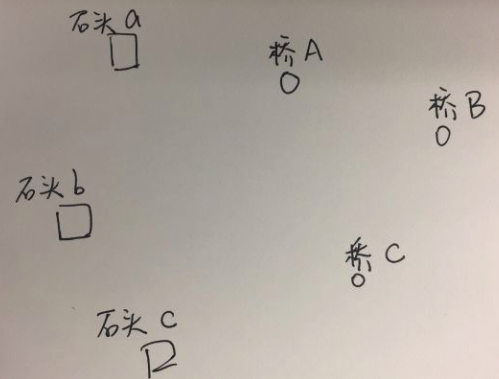 石头a
桥A
桥B
石头b
桥C
石头c